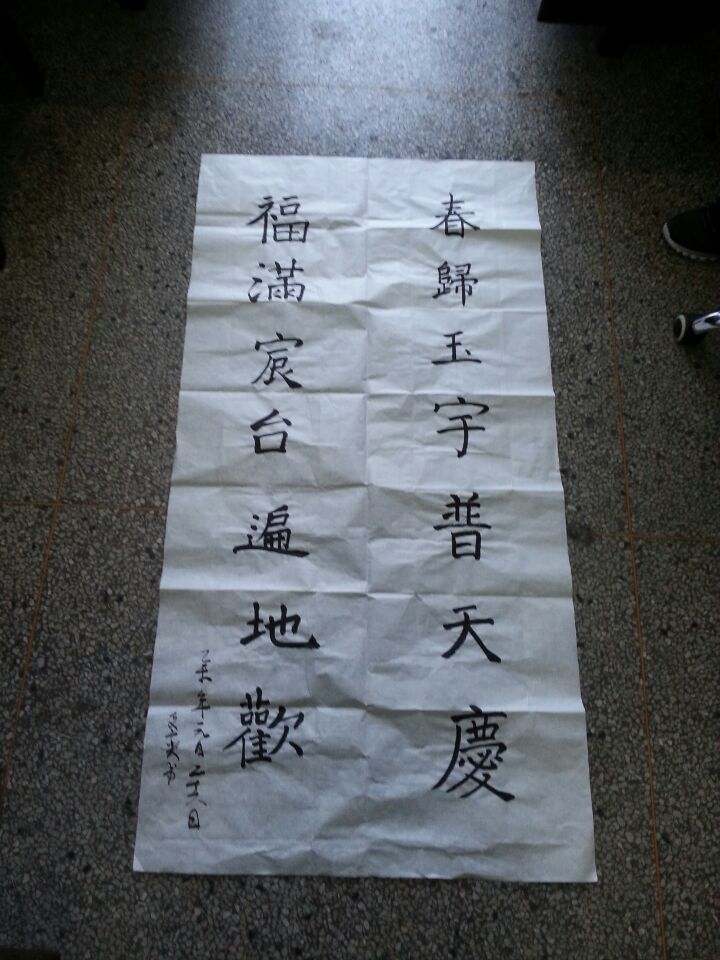 春歸玉宇普天慶
福滿宸台遍地歡
年元月二十八日
书